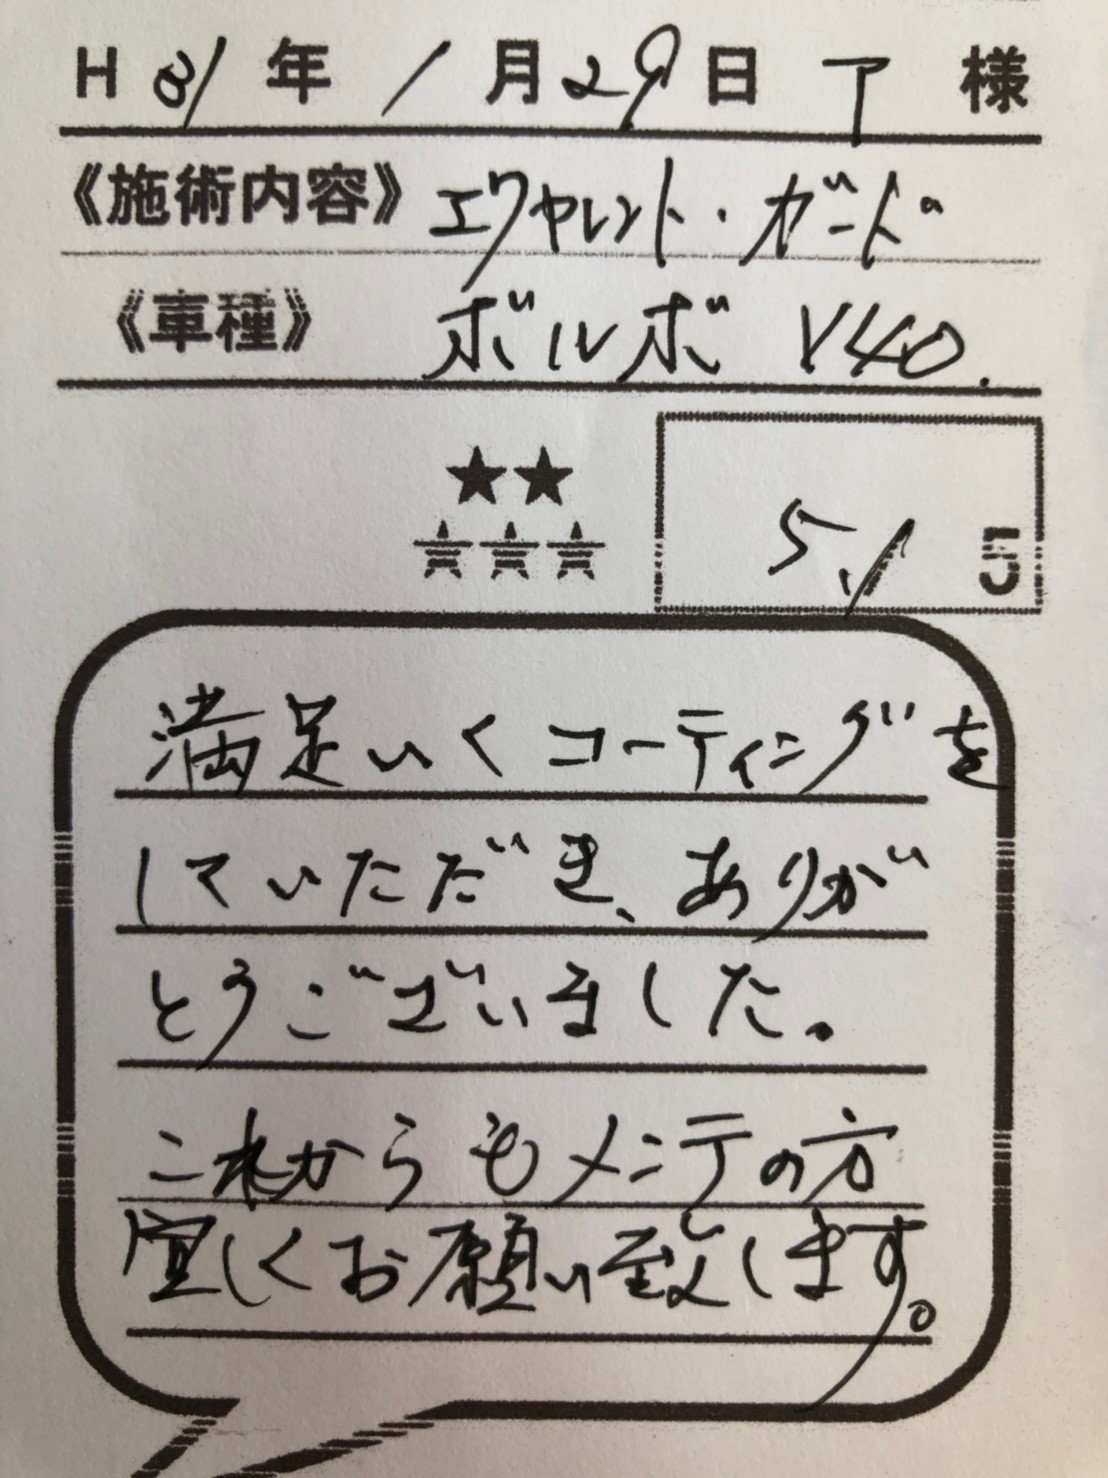 H 31 年 1 月 29 日 T 様
《施術内容》 エクセレント・ガード
《車種》 ボルボ V40.
★★
★★★
5./ 5
満足いくコーティングを
していただき、ありが
とうございました。
これからもメンテの方
宜しくお願い致します。